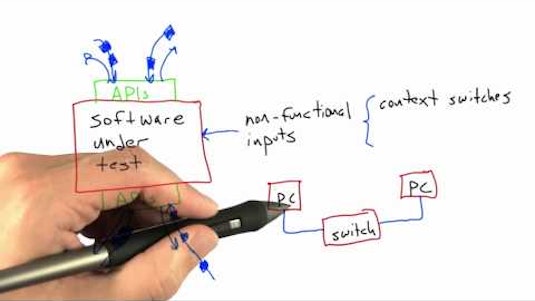 APIs
software
under
test
non-functional
inputs
context switches
AP
PC
switch
PC